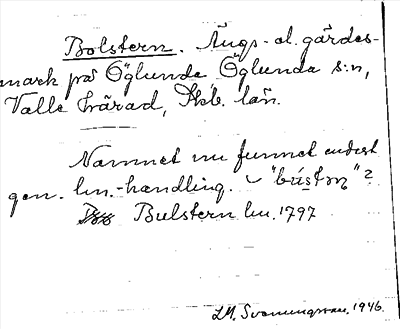 Bolstern. Ängs- o. gärdes-
mark på Öglunda Öglunda s:n,
Valle härad, Skb. län.
Namnet nu funnet endast
gen. lm.-handling. "bu̇stɱ"?
Bulstern lm. 1797
1946.